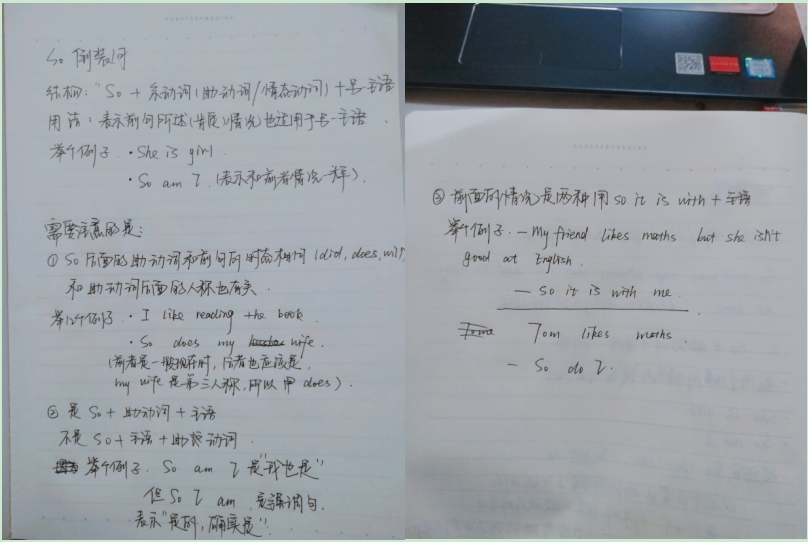 So 倒装句
结构："So + 系动词(助动词/情态动词) + 另一主语
用法：表示前句所述(肯定)情况也适用于另一主语.
举个例子. · She is girl.
· So am I. (表示和前者情况一样).
需要注意的是：
① So 后面的助动词和前句的时态相同 (did, does, will)
和助动词后面的人称也有关.
举个例子 · I like reading the book.
· So does my wife.
(前者是一般现在时，后者也应该是，
my wife 是第三人称，所以用 does).
② 是 So + 助动词 + 主语
不是 So + 主语 + 助动词.
举个例子. So am I 是"我也是"
但 So I am 是强调句.
表示"是的，确实是".
③ 前面的情况是两种用 so it is with + 主语
举个例子. — My friend likes maths but she isn't
good at English.
— So it is with me.
Tom likes maths
— So do I.